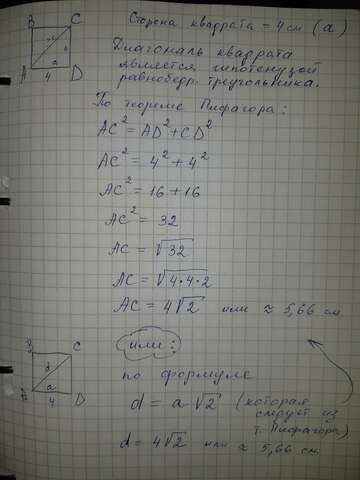 B C
Сторона квадрата = 4 см (a)
a
A 4 D
Диагональ квадрата
является гипотенузой
равнобедр. треугольника.
По теореме Пифагора:
AC² = AD² + CD²
AC² = 4² + 4²
AC² = 16 + 16
AC² = 32
AC = √32
AC = √4*4*2
AC = 4√2 или ≈ 5,66 см
или:
C
d
a
4 D
по формуле
d = a√2 (которая
следует из
т. Пифагора)
d = 4√2 или ≈ 5,66 см.